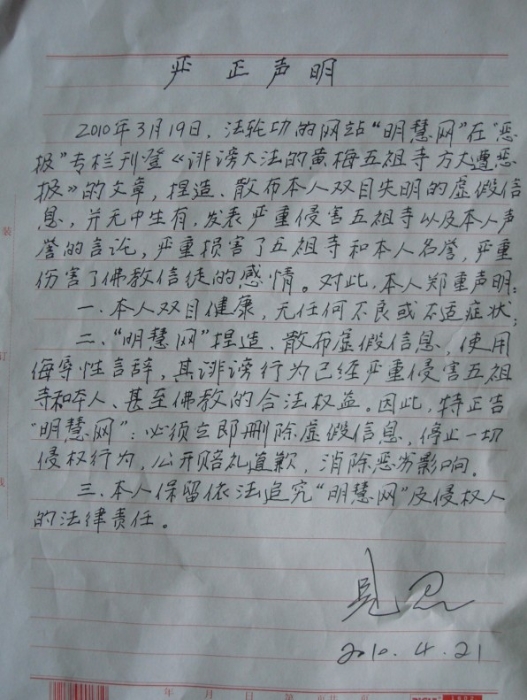 严正声明
2010年3月19日，法轮功的网站“明慧网”在“恶
报”专栏刊登《诽谤大法的黄梅五祖寺方丈遭恶
报》的文章，捏造、散布本人双目失明的虚假信
息，并无中生有，发表严重侵害五祖寺以及本人声
誉的言论，严重损害了五祖寺和本人名誉，严重
伤害了佛教信徒的感情。对此，本人郑重声明：
一、本人双目健康，无任何不良或不适症状；
二、“明慧网”捏造、散布虚假信息，使用
侮辱性言辞，其诽谤行为已经严重侵害五祖
寺和本人、甚至佛教的合法权益。因此，特正告
“明慧网”：必须立即删除虚假信息，停止一切
侵权行为，公开赔礼道歉，消除恶劣影响。
三、本人保留依法追究“明慧网”及侵权人
的法律责任。
见忍
2010.4.21
年 月 日